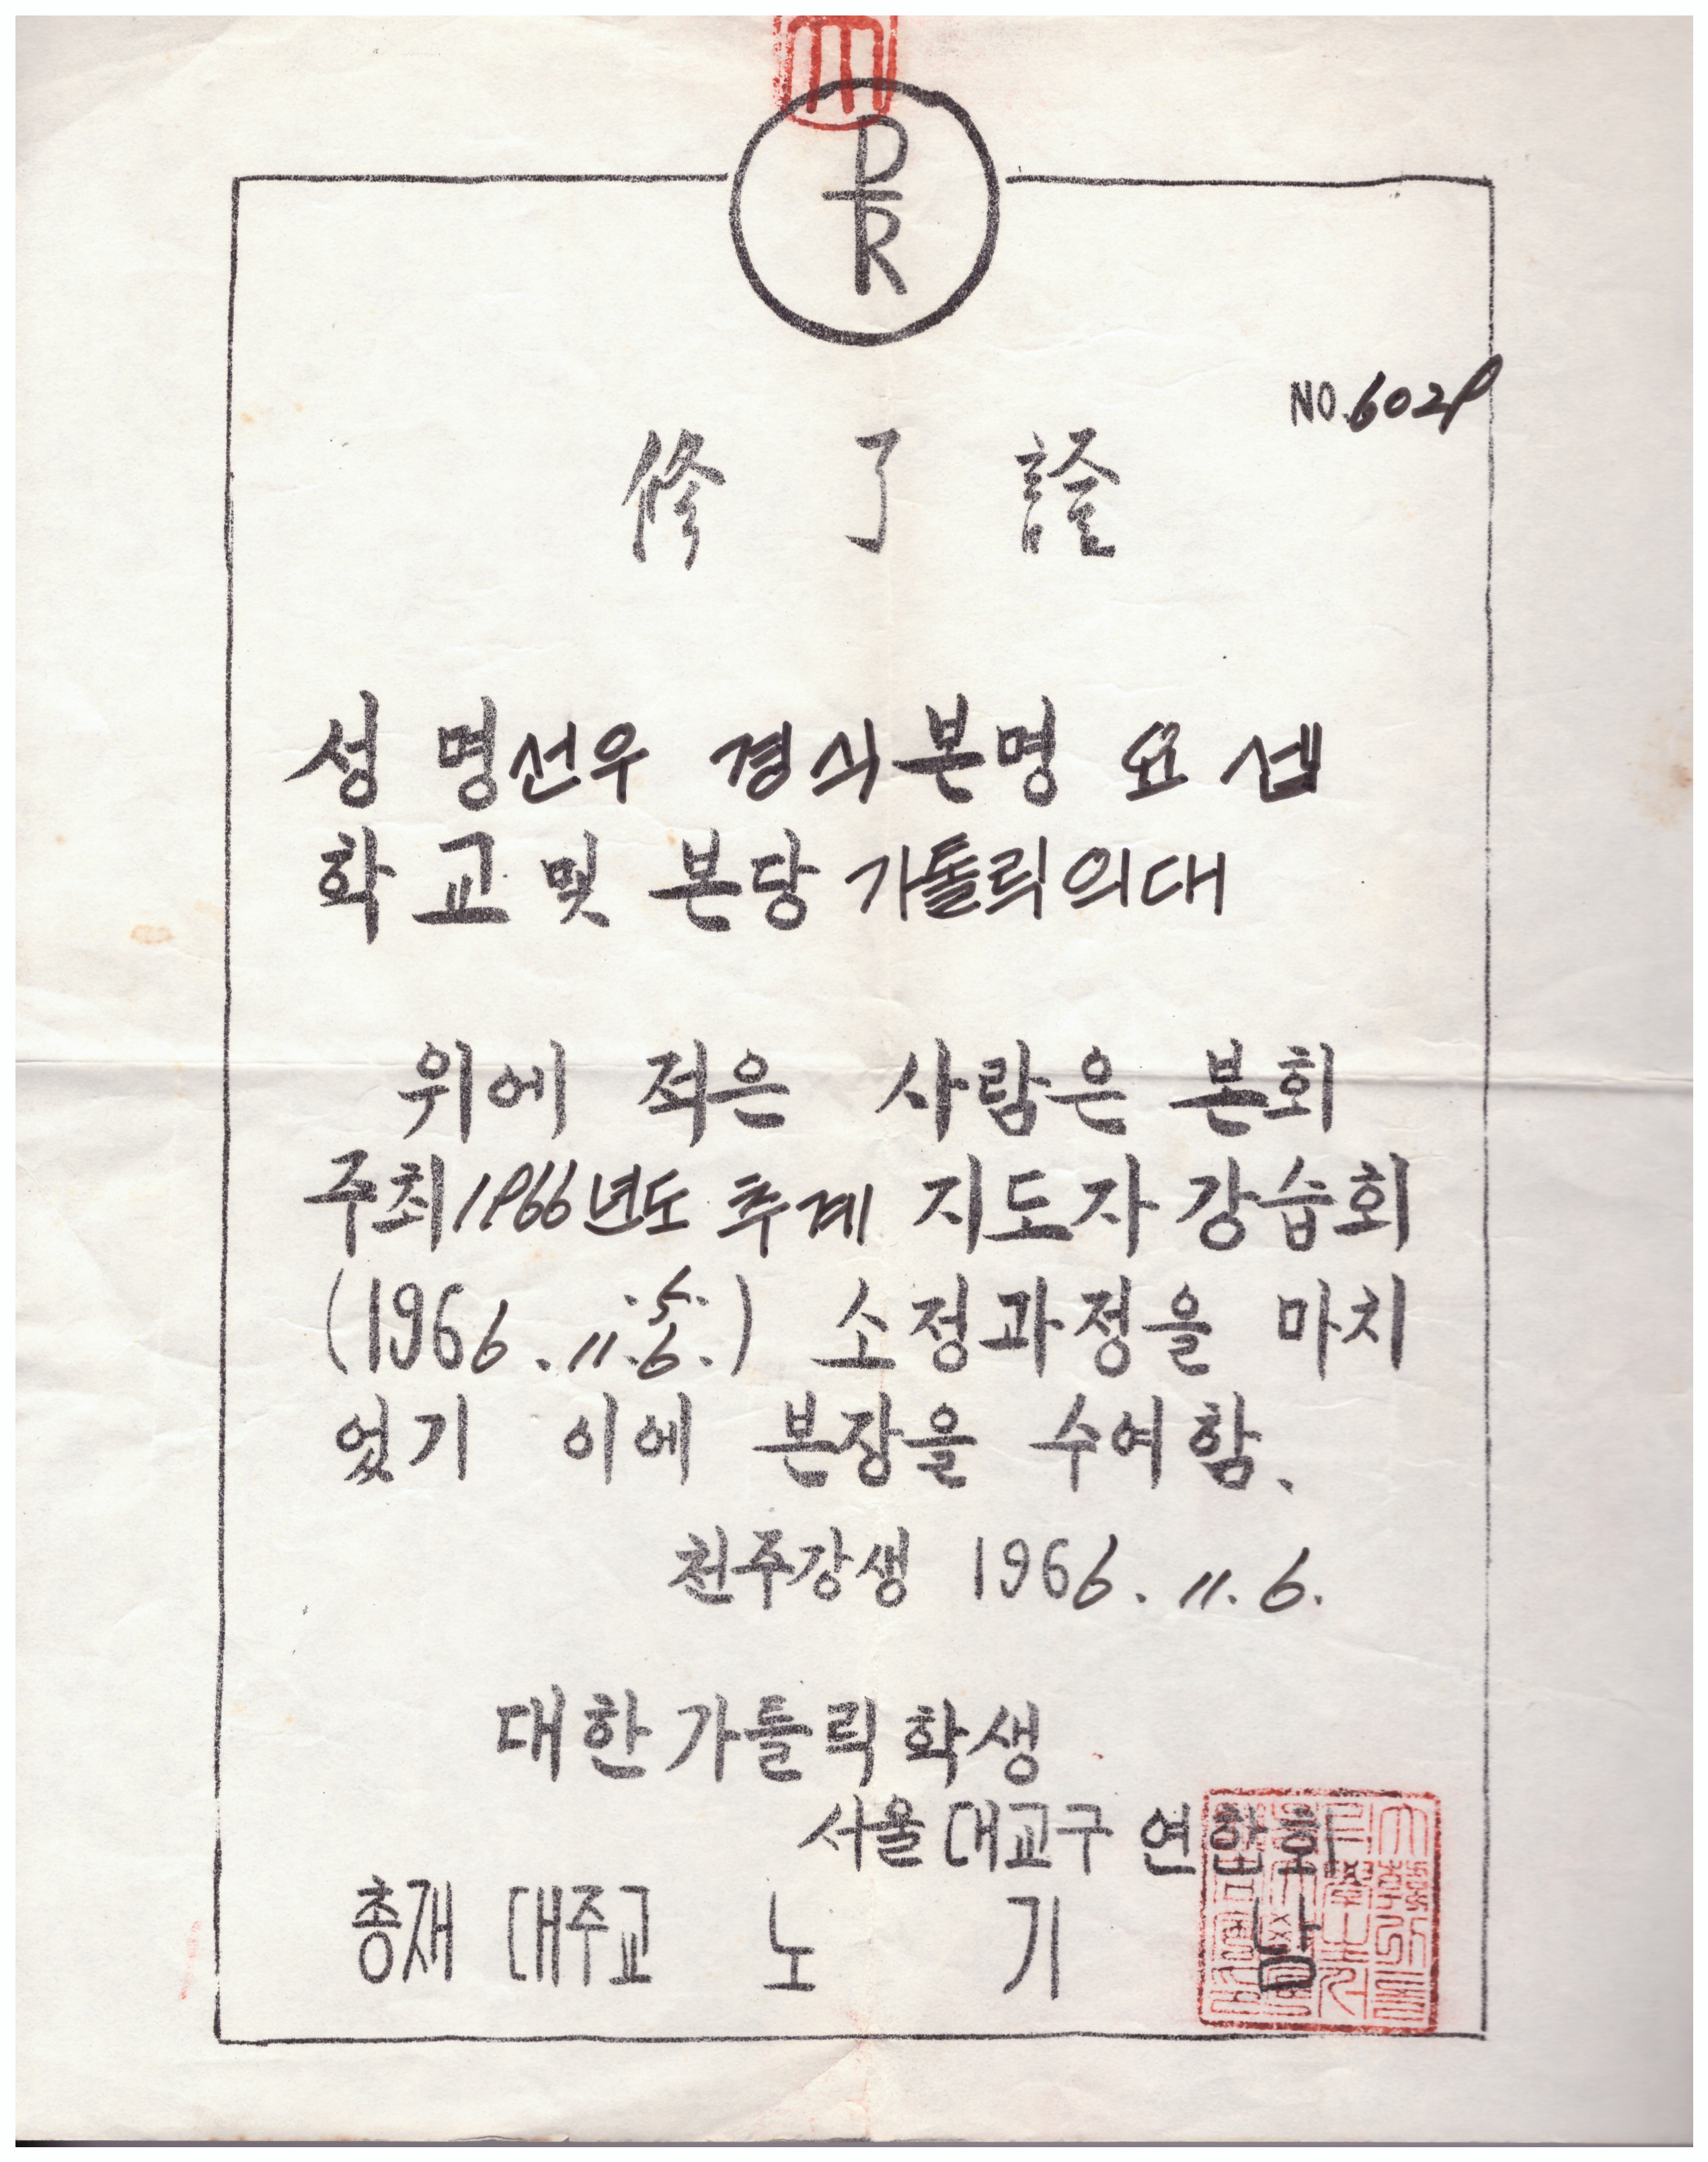 PR
NO.6029
修了證
성 명 선우 경식 본명 요셉
학교 및 본당 가톨릭의대
위에 적은 사람은 본회
주최 1966년도 추계 지도자 강습회
(1966.11.5.6.) 소정과정을 마치
었기 이에 본장을 수여함.
천주강생 1966.11.6.
대한가톨릭학생
서울대교구 연합회
총재 대주교 노기남